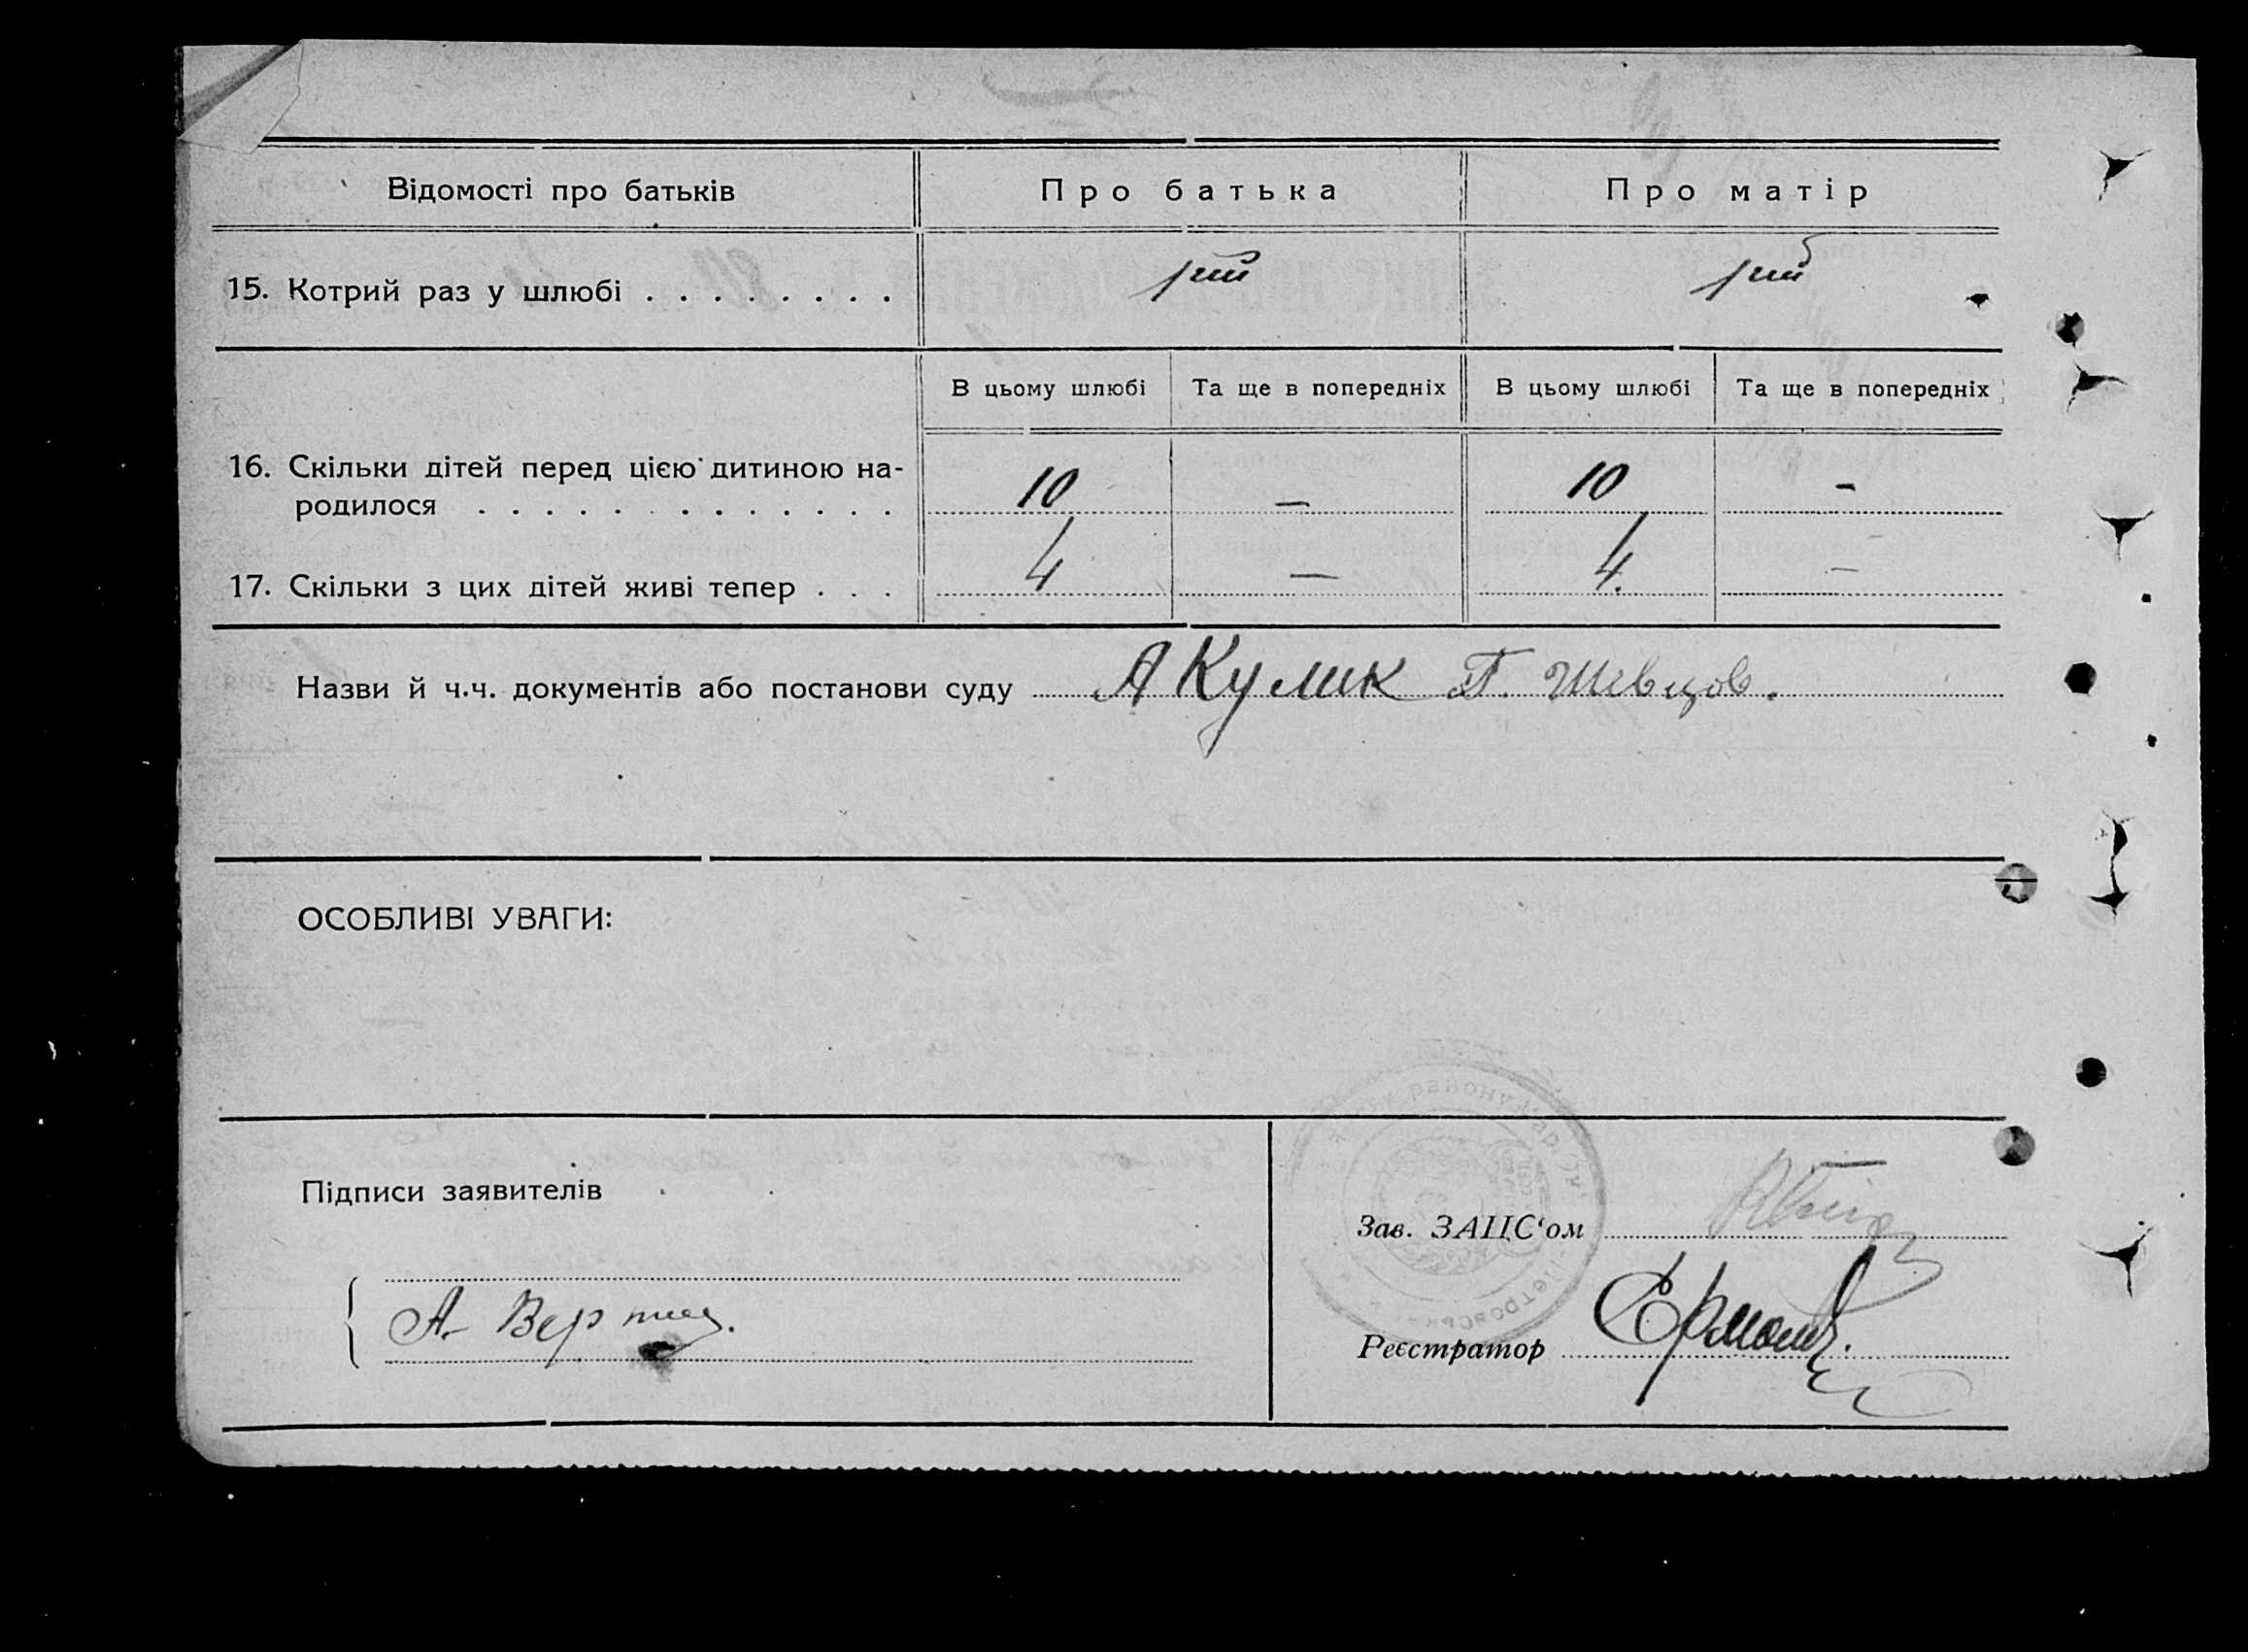 Відомості про батьків
Про батька
Про матір
15. Котрий раз у шлюбі . . . . . . . .
1ий
1ий
В цьому шлюбі
Та ще в попередніх
В цьому шлюбі
Та ще в попередніх
16. Скільки дітей перед цією дитиною на-
родилося . . . . . . . . . . . . .
10
—
10
—
17. Скільки з цих дітей живі тепер . . .
4
—
4.
—
Назви й ч.ч. документів або постанови суду А Кулик Т. Шевцов.
ОСОБЛИВІ УВАГИ:
Підписи заявителів
Зав. ЗАЦС'ом
А.
Реєстратор